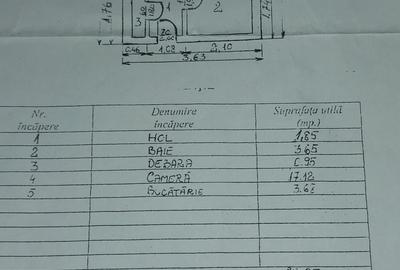 1.76
3
1
2
1.74
0.46
1.08
2.10
3.63
Nr. încăpere Denumire încăpere Suprafața utilă (mp.)
1 HOL 1.85
2 BAIE 3.65
3 DEBARA 0.95
4 CAMERĂ 17.12
5 BUCĂTĂRIE